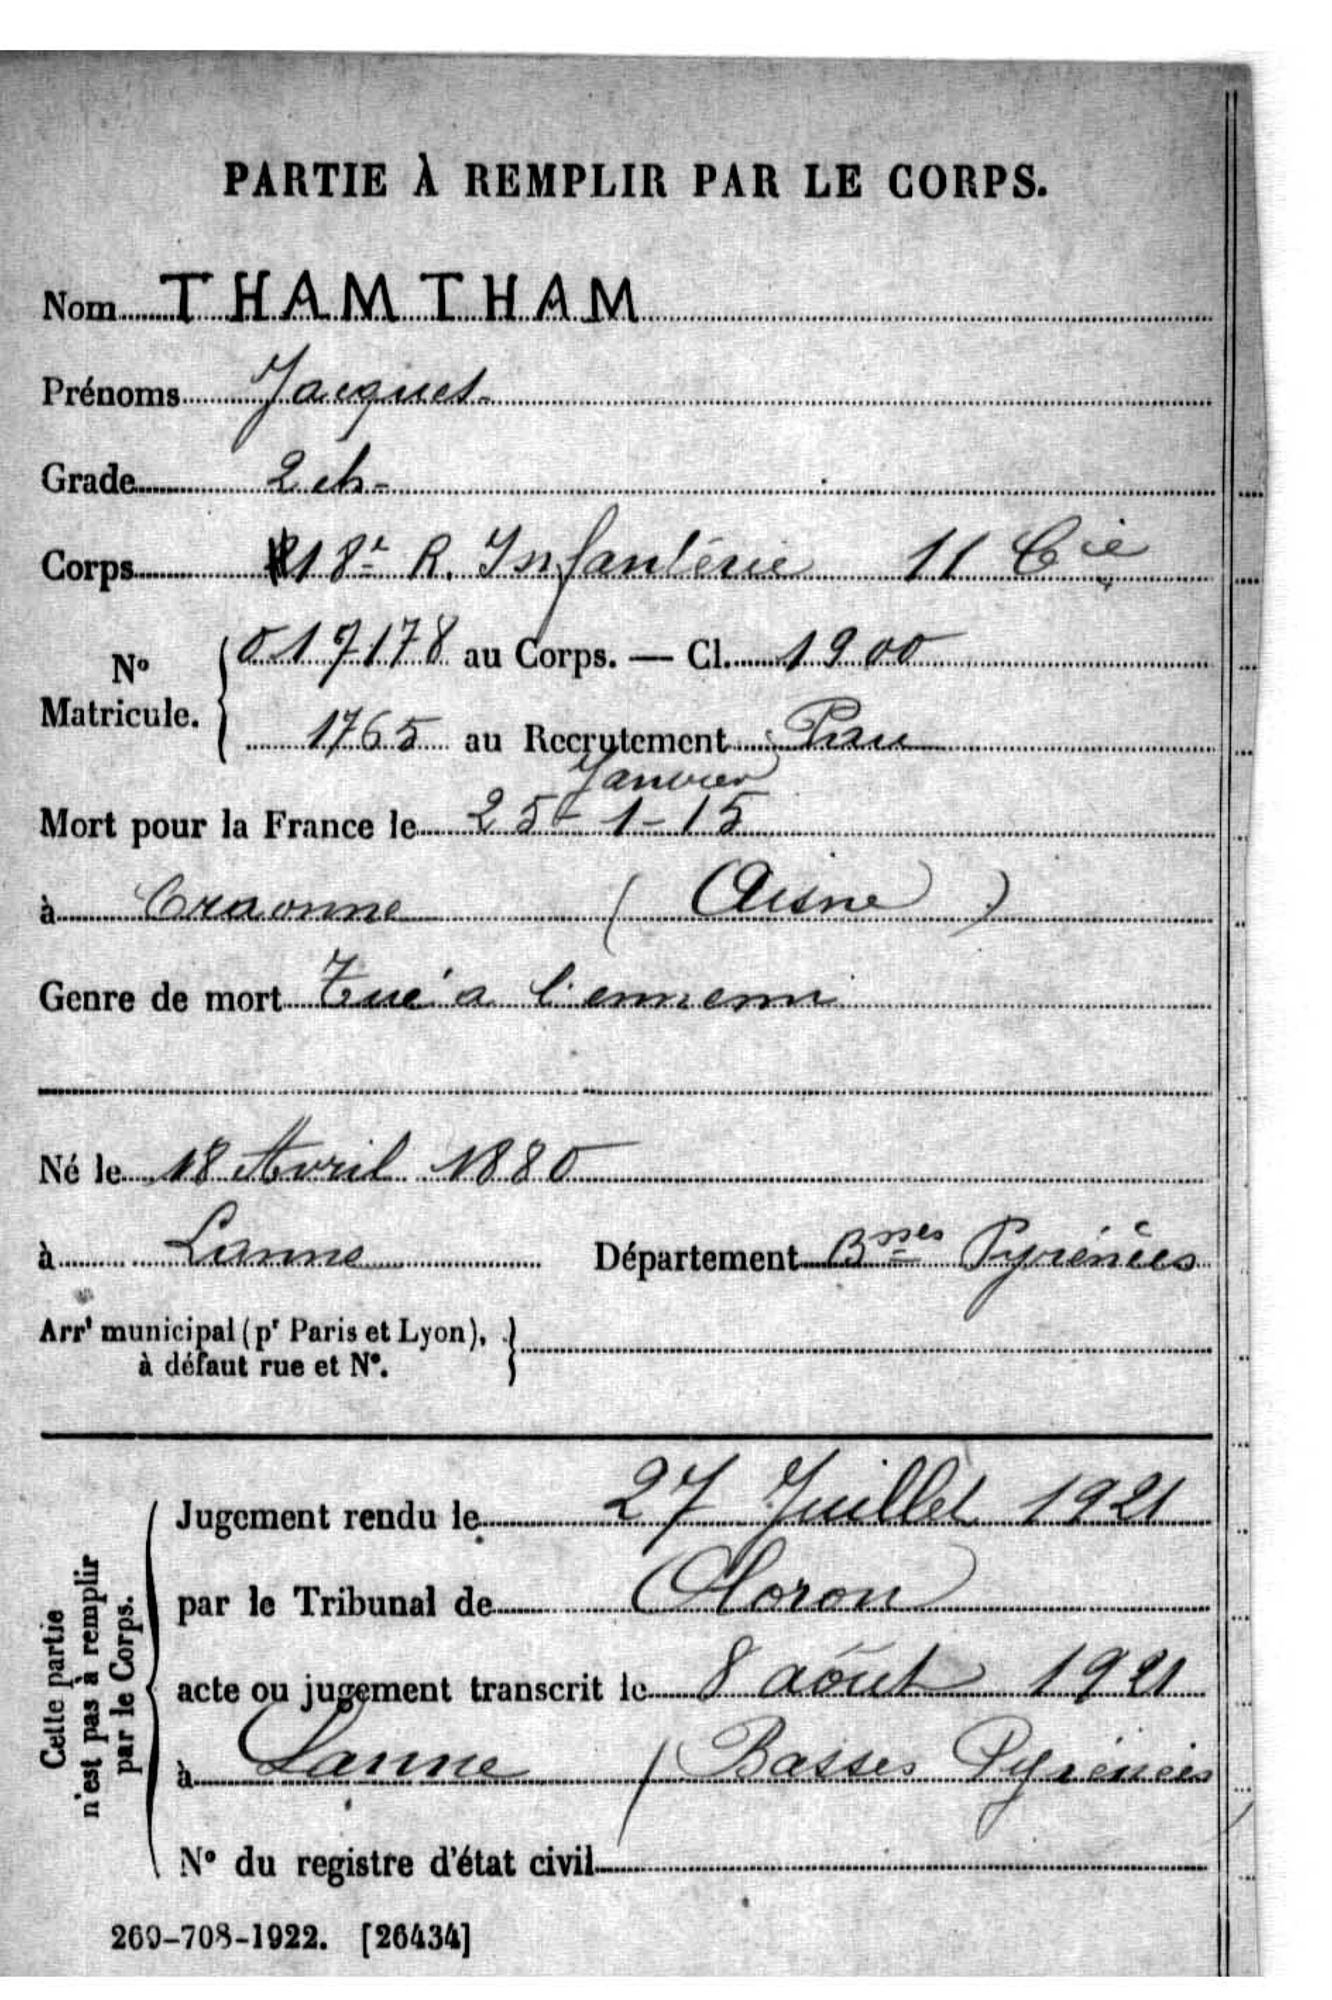 PARTIE À REMPLIR PAR LE CORPS.
Nom THAMTHAM
Prénoms Jacques
Grade 2 ch-
Corps 18e R. Infanterie 11 Cie
No Matricule. { 017178 au Corps. — Cl. 1900
1765 au Recrutement Pau
Janvier
Mort pour la France le 25-1-15
à Craonne (Aisne)
Genre de mort Tué a l'ennemi
Né le 18 Avril 1880
à Lanne Département Bsses Pyrénées
Arrt municipal (pr Paris et Lyon), }
à défaut rue et No.
Cette partie
n'est pas à remplir
par le Corps.
Jugement rendu le 27 Juillet 1921
par le Tribunal de Oloron
acte ou jugement transcrit le 8 août 1921
à Lanne (Basses Pyrénées
No du registre d'état civil
269-708-1922. [26434]